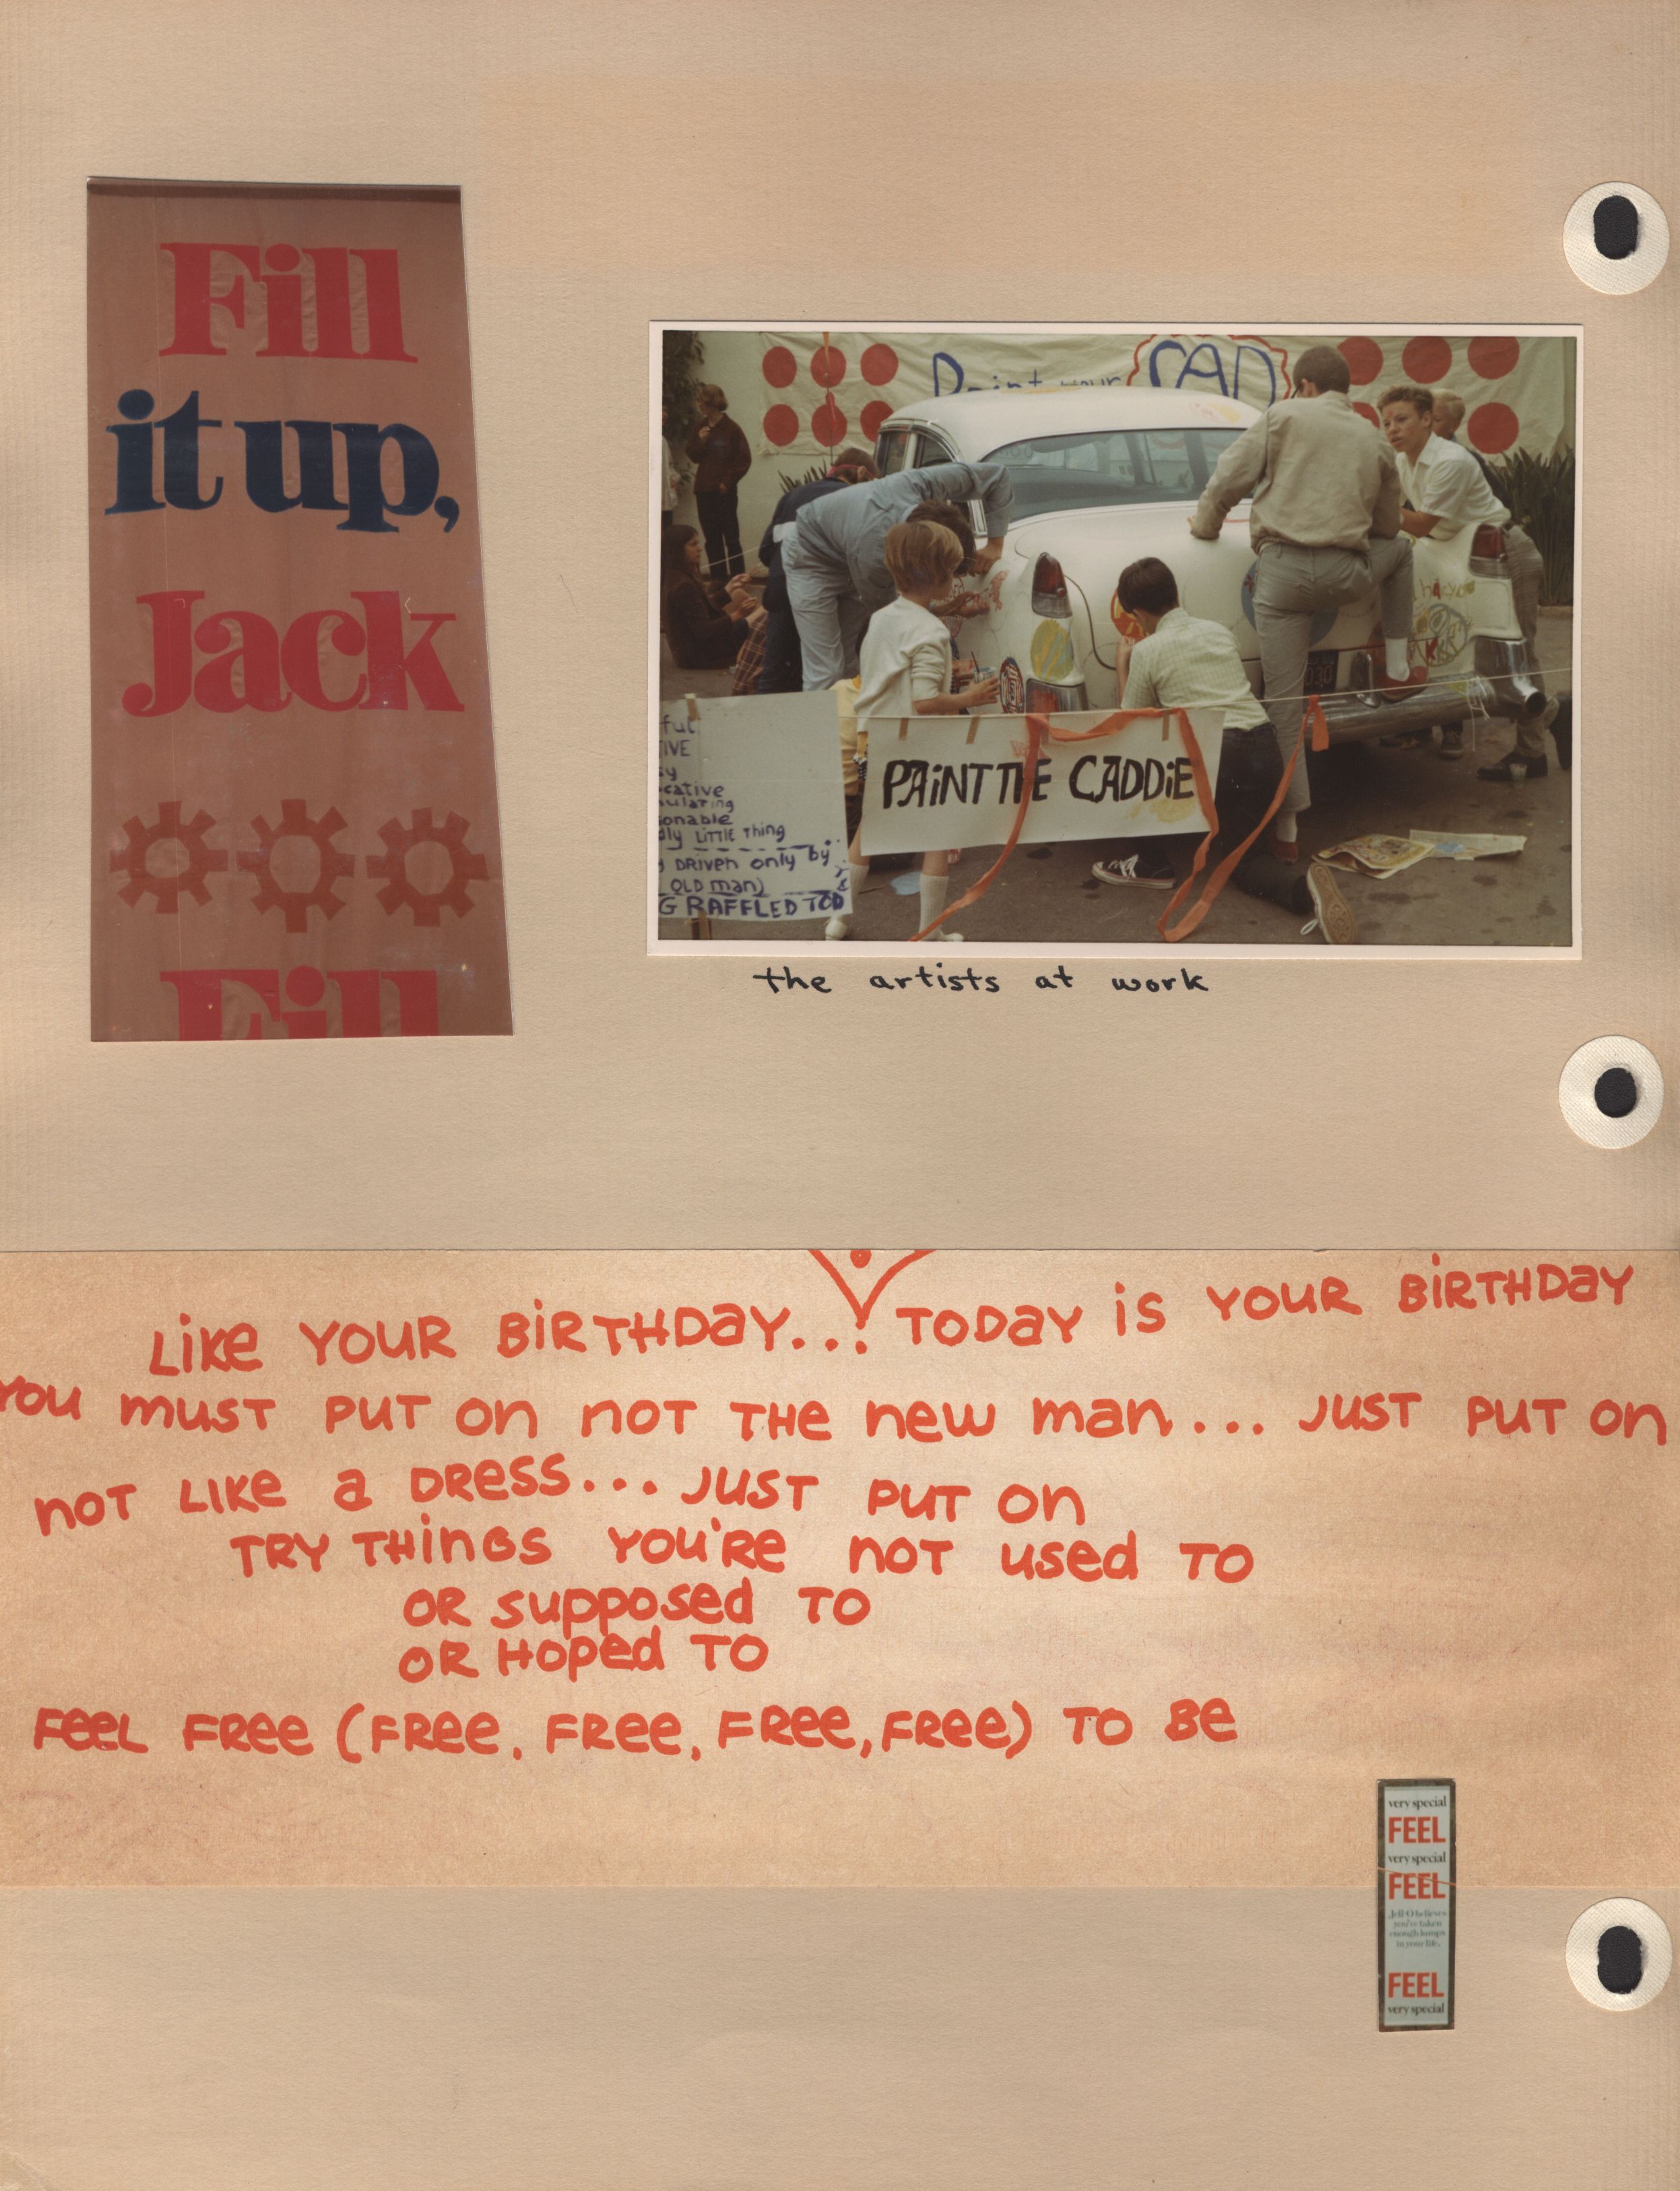 Fill
it up,
Jack
Fill
Paint your CAD
PAINT THE CADDIE
LITTLE THING
DRIVEN only by
OLD man)
RAFFLED TOD
the artists at work
LIKE YOUR BIRTHDAY... TODAY IS YOUR BIRTHDAY
YOU MUST PUT ON NOT THE NEW MAN... JUST PUT ON
NOT LIKE A DRESS... JUST PUT ON
TRY THINGS YOU'RE NOT USED TO
OR SUPPOSED TO
OR HOPED TO
FEEL FREE (FREE, FREE, FREE, FREE) TO BE
very special
FEEL
very special
FEEL
Jell-O believes
you've taken
enough lumps
in your life.
FEEL
very special